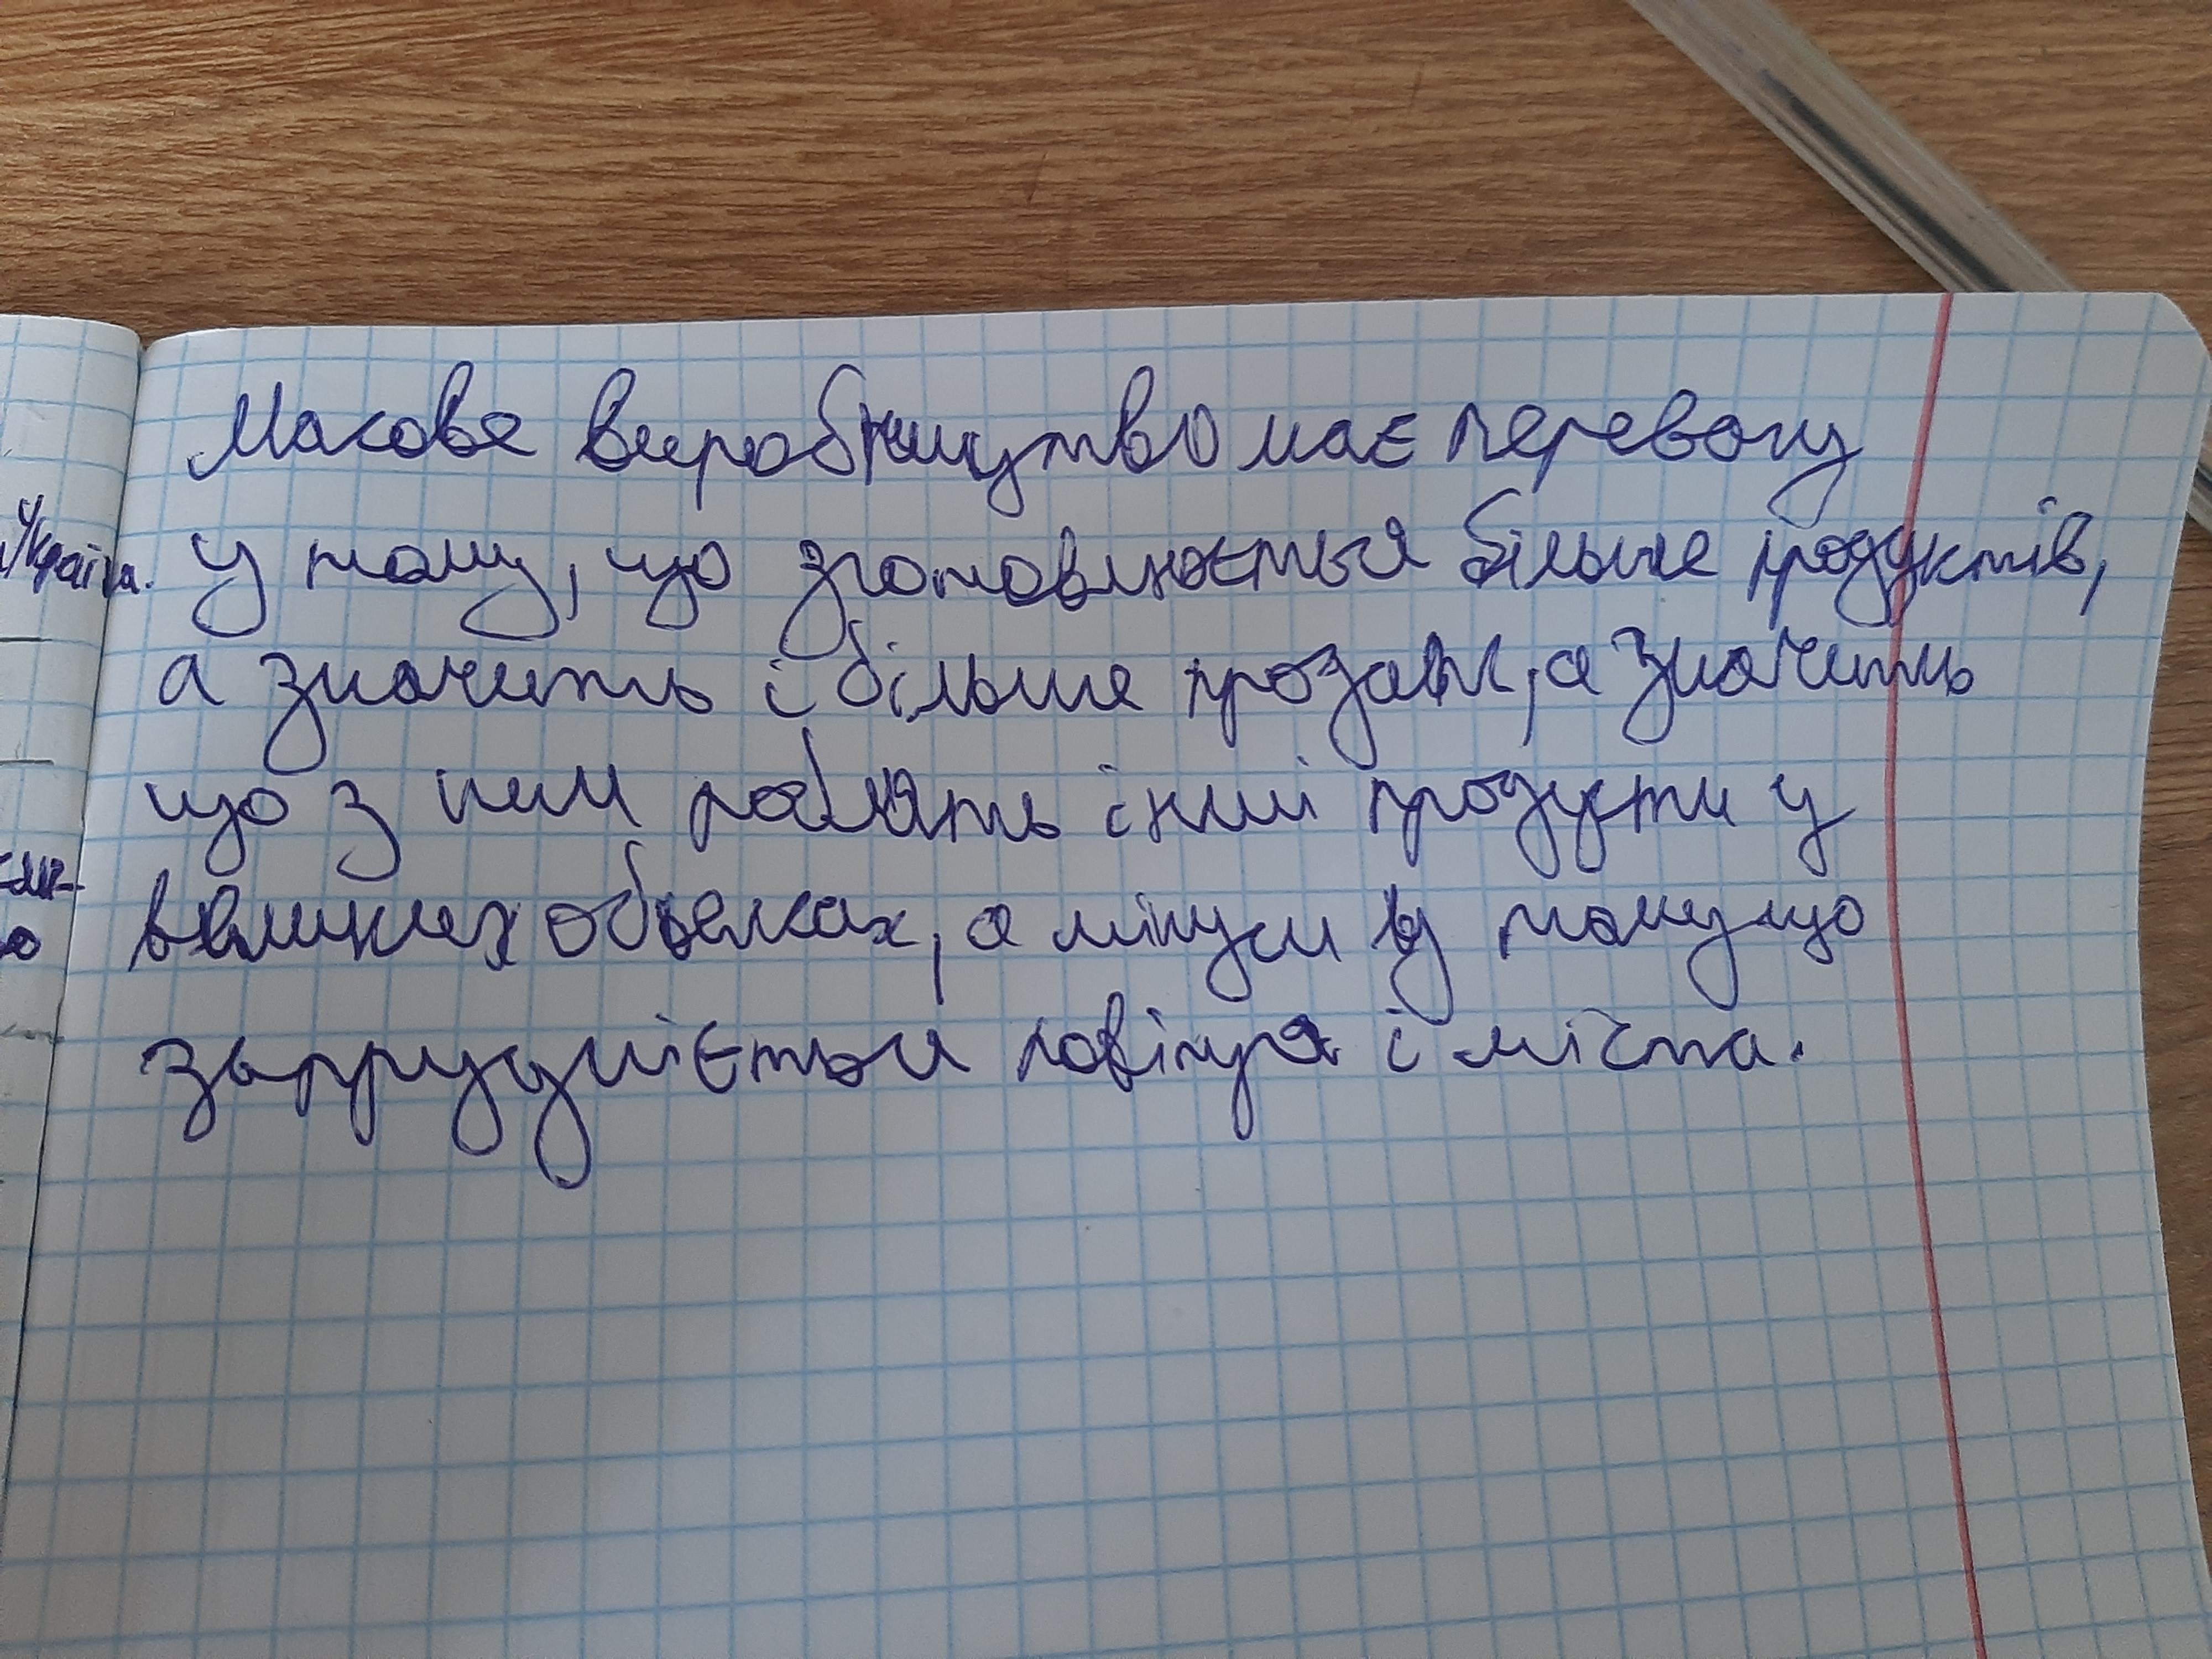 Масове виробництво має перевагу
Україна.
у тому, що зготовлюється більше продуктів,
а значить і більше продаж, а значить
що з ним роблять інші продукти у
великих обьемах, а мінуси у тому що
забрудніється повітря і міста.